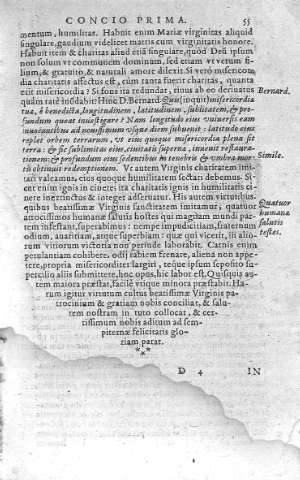 CONCIO PRIMA. 55
mentum, humilitas. Habuit enim Mariæ virginitas aliquid
singulare, gaudium videlicet matris cum virginitatis honore.
Habuit item & charitas aliud etiã singulare, quòd Deũ ipsum
non solum vt communem dominum, sed etiam vt verum fi-
lium, & gratuito & naturali amore dilexit. Si verò misericor-
dia charitatis affectus est, cùm tanta fuerit charitas, quanta
erit misericordia? Si fons ita redundat, riuus ab eo deriuatus
quàm ratè inundabit? Hinc D. Bernard. Quis (inquit) misericordiæ
tuæ, ô benedicta, longitudinem, latitudinem, sublimitatem, & pro-
fundum queat inuestigare? Nam longitudo eius vniuersis eam
inuocantibus ad nouissimum vsque diem subuenit: latitudo eius
replet orbem terrarum, vt eius quoque misericordia plena sit
terra: & sic sublimitas eius, ciuitatis supernæ, inuenit restaura-
tionem: & profundum eius sedentibus in tenebris & vmbra mor-
tis obtinuit redemptionem. Vt autem Virginis charitatem imi-
tari valeamus, eius quoque humilitatem sectari debemus. Si-
cut enim ignis in cinere: ita charitatis ignis in humilitatis ci-
nere inextinctus & integer adseruatur. His autem virtutibus,
quibus beatissimæ Virginis sanctitatem imitamur, quatuor
atrocissimos humanæ salutis hostes qui magitam mundi par-
tem infestant, superabimus: nempe impudicitiam, fraternum
odium, auaritiam, atque superbiam: quæ qui vicerit, in alio-
rum vitiorum victoria non perinde laborabit. Carnis enim
petulantiam cohibere, odij rabiem frenare, aliena non appe-
tere, propria misericorditer largiri, seque ipsum seposito su-
percilio alijs submittere, hoc opus, hic labor est. Quisquis au-
tem maiora præstat, facilè vtique minora præstabit. Ha-
rum igitur virtutum cultus beatissimæ Virginis pa-
trocinium & gratiam nobis conciliat, & salu-
tem nostram in tuto collocat, & cer-
tissimum nobis aditum ad sem-
piternæ felicitatis glo-
riam parat.
***
D 4 IN
Bernard.
Simile.
Quatuor
humanæ
salutis
hostes.